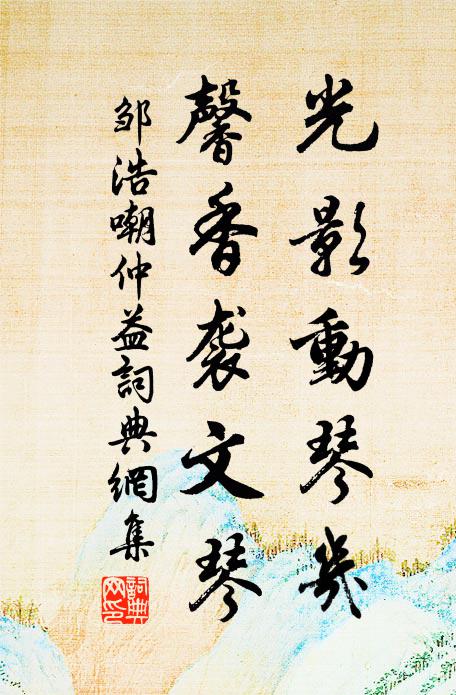 光影動琴幾
馨香袭文琴
邹浩嘲仲益詞典網集
詞典网印